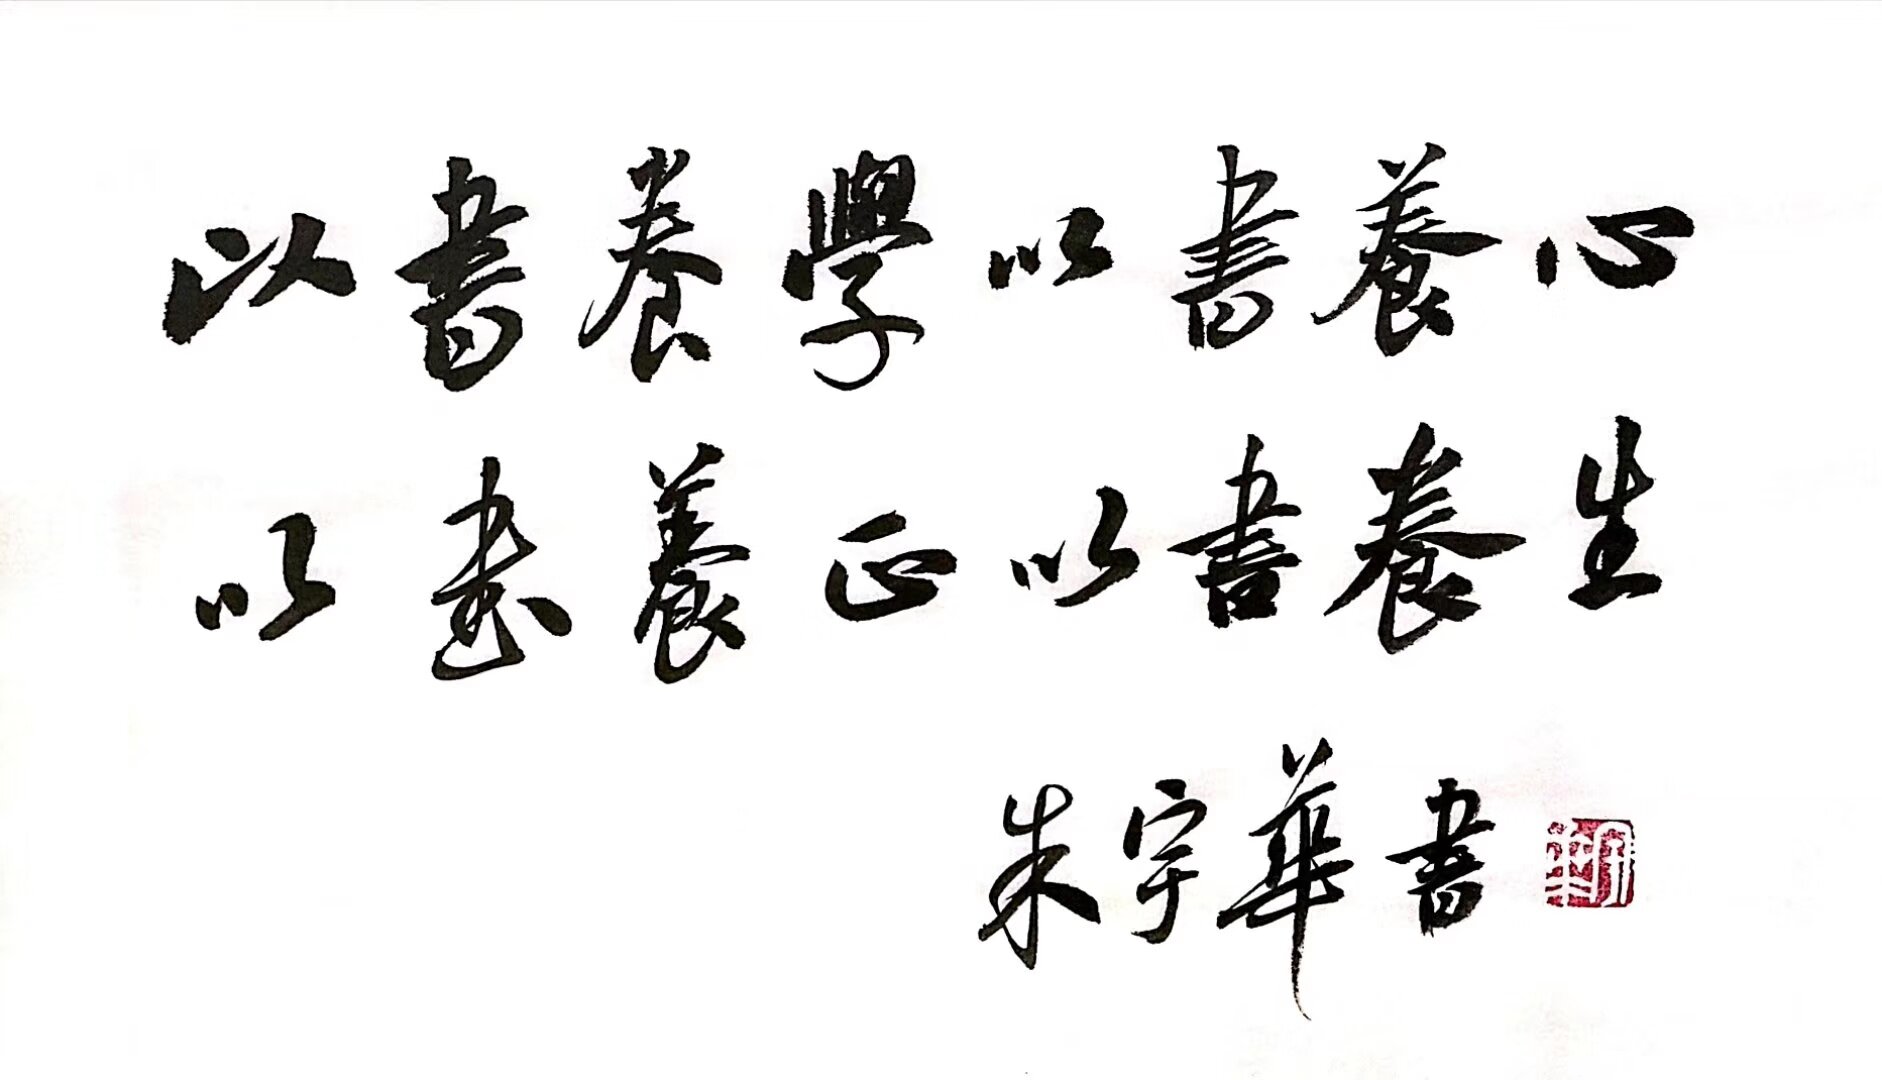 以書養學以書養心
以書養正以書養生
朱宇華書